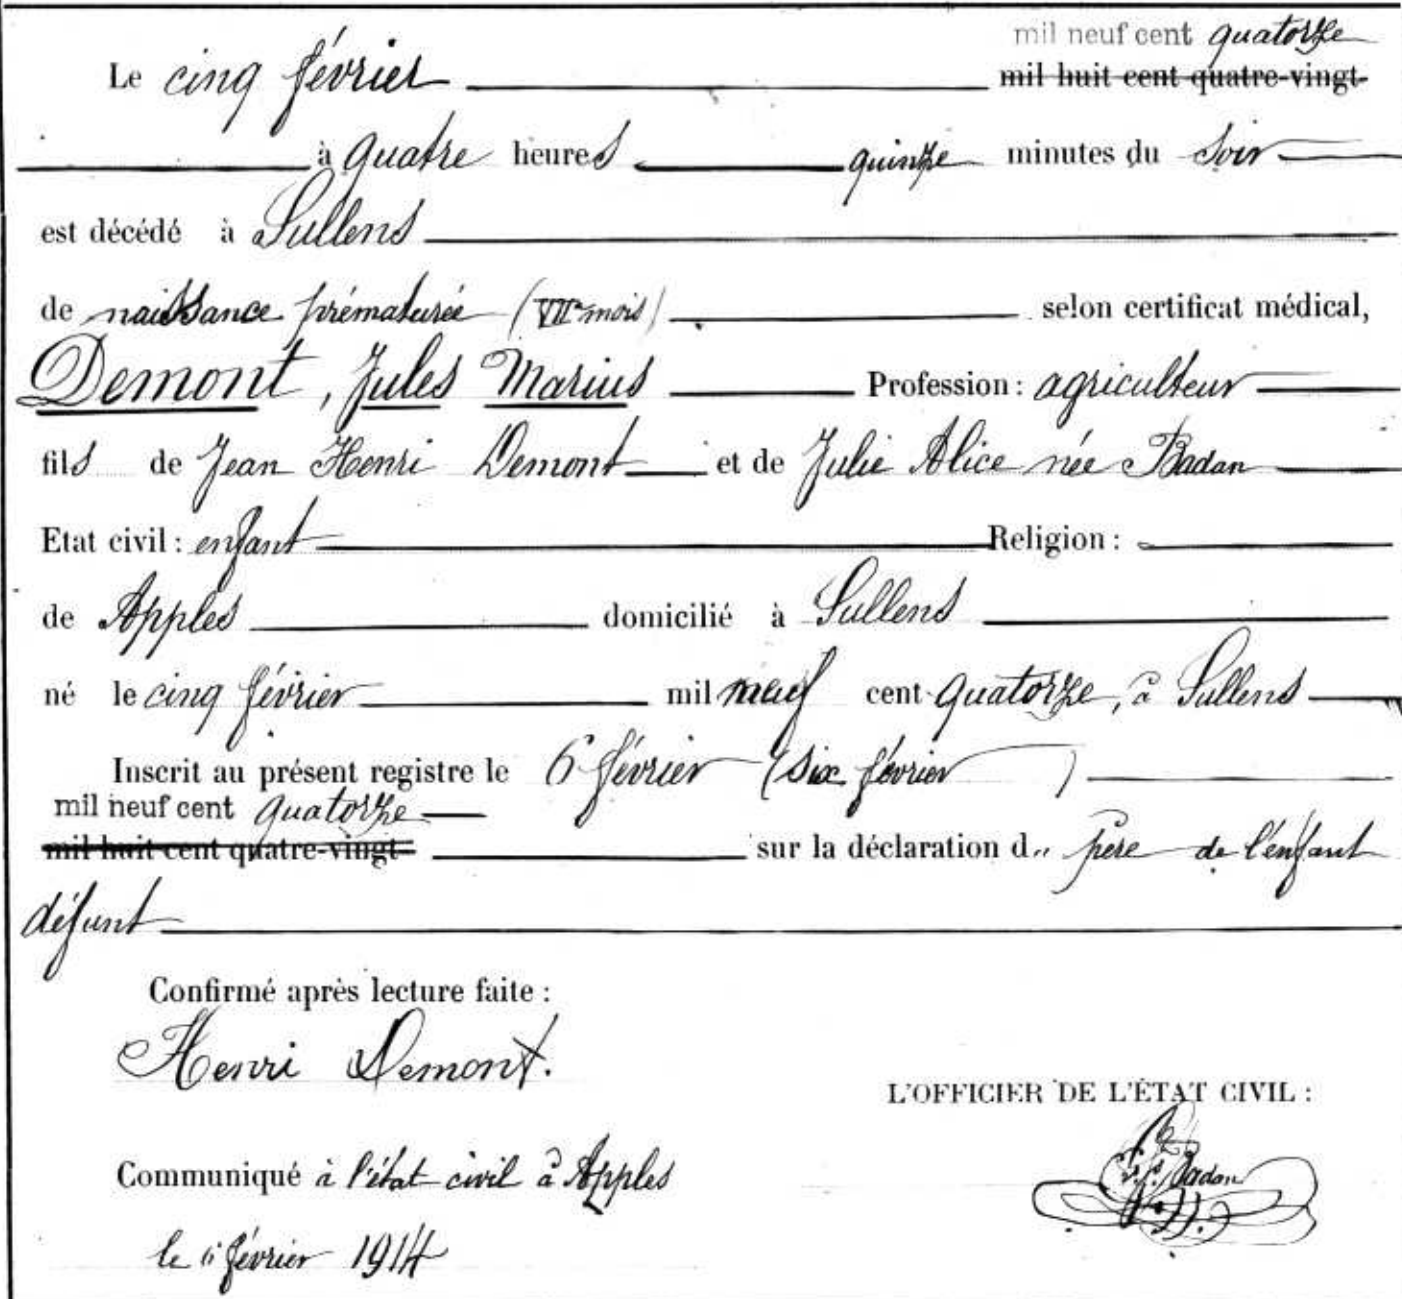 mil neuf cent quatorze
Le cinq février mil huit cent quatre-vingt-
à quatre heures quinze minutes du soir
est décédé à Sullens
de naissance prématurée (VIIe mois) selon certificat médical,
Demont, Jules Marius Profession : agriculteur
fils de Jean Henri Demont et de Julie Alice née Badan
Etat civil : enfant Religion :
de Apples domicilié à Sullens
né le cinq février mil neuf cent quatorze, à Sullens
Inscrit au présent registre le 6 février (six février)
mil neuf cent quatorze
mil huit cent quatre-vingt- sur la déclaration d" père de l'enfant
défunt
Confirmé après lecture faite :
Henri Demont.
L'OFFICIER DE L'ÉTAT CIVIL :
Badan
Communiqué à l'état civil à Apples
le 6 février 1914